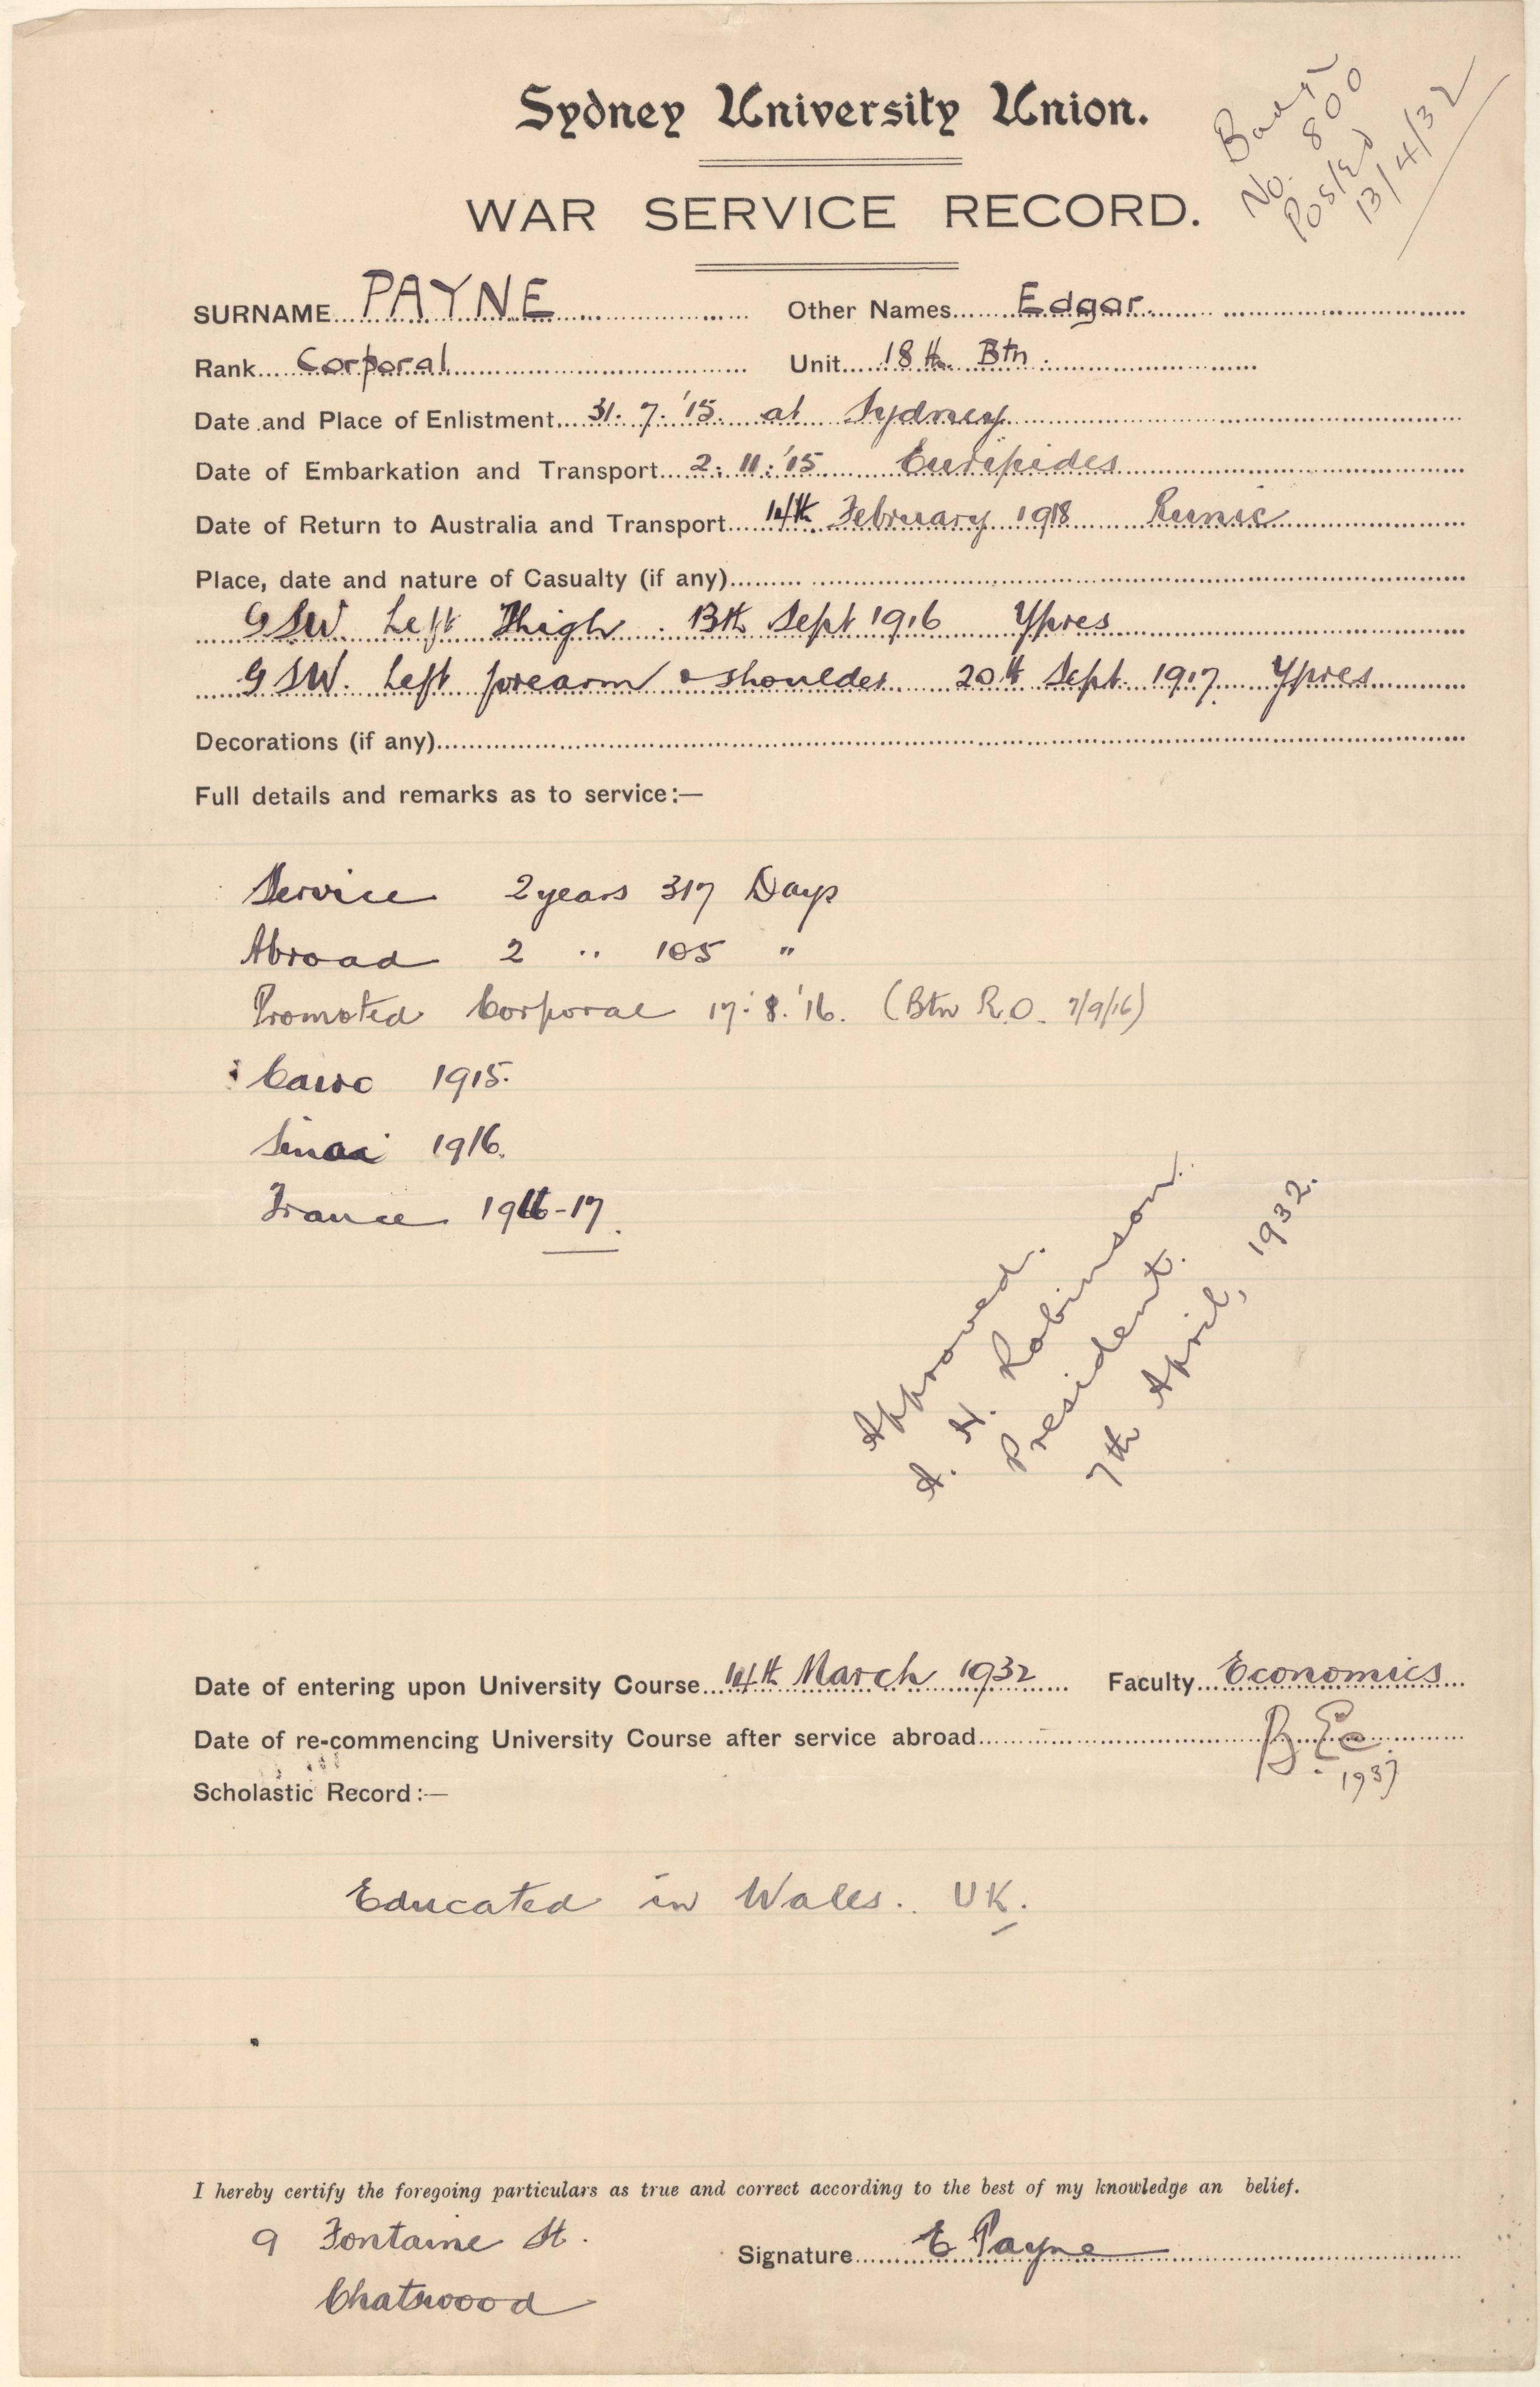 Sydney University Union.
Badge
No. 800
Posted
13/4/32
WAR SERVICE RECORD.
SURNAME PAYNE Other Names Edgar
Rank Corporal Unit 18th Btn.
Date and Place of Enlistment 31.7.'15. at Sydney
Date of Embarkation and Transport 2.11.'15 Euripides
Date of Return to Australia and Transport 14th February 1918 Runic
Place, date and nature of Casualty (if any)
GSW. Left Thigh. 13th Sept 1916 Ypres
GSW. Left forearm & shoulder 20th Sept. 1917. Ypres
Decorations (if any)
Full details and remarks as to service:—
Service 2 years 317 Days
Abroad 2 " 105 "
Promoted Corporal 17.8.'16. (Btn R.O. 7/9/16)
Cairo 1915.
Sinai 1916.
France 1916-17.
Approved.
A. H. Robinson.
President.
7th April, 1932.
Date of entering upon University Course 14th March 1932 Faculty Economics
Date of re-commencing University Course after service abroad B.Ec.
1937
Scholastic Record:—
Educated in Wales. UK.
I hereby certify the foregoing particulars as true and correct according to the best of my knowledge an belief.
9 Fontaine St.
Signature E Payne
Chatswood